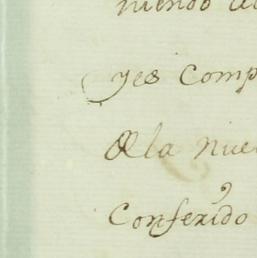 niendo
yes comp
Dla nue
Conferido